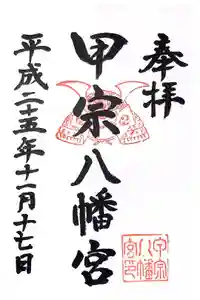 奉拝
甲宗八幡宮
平成二十五年十一月十七日
甲宗八幡宮印